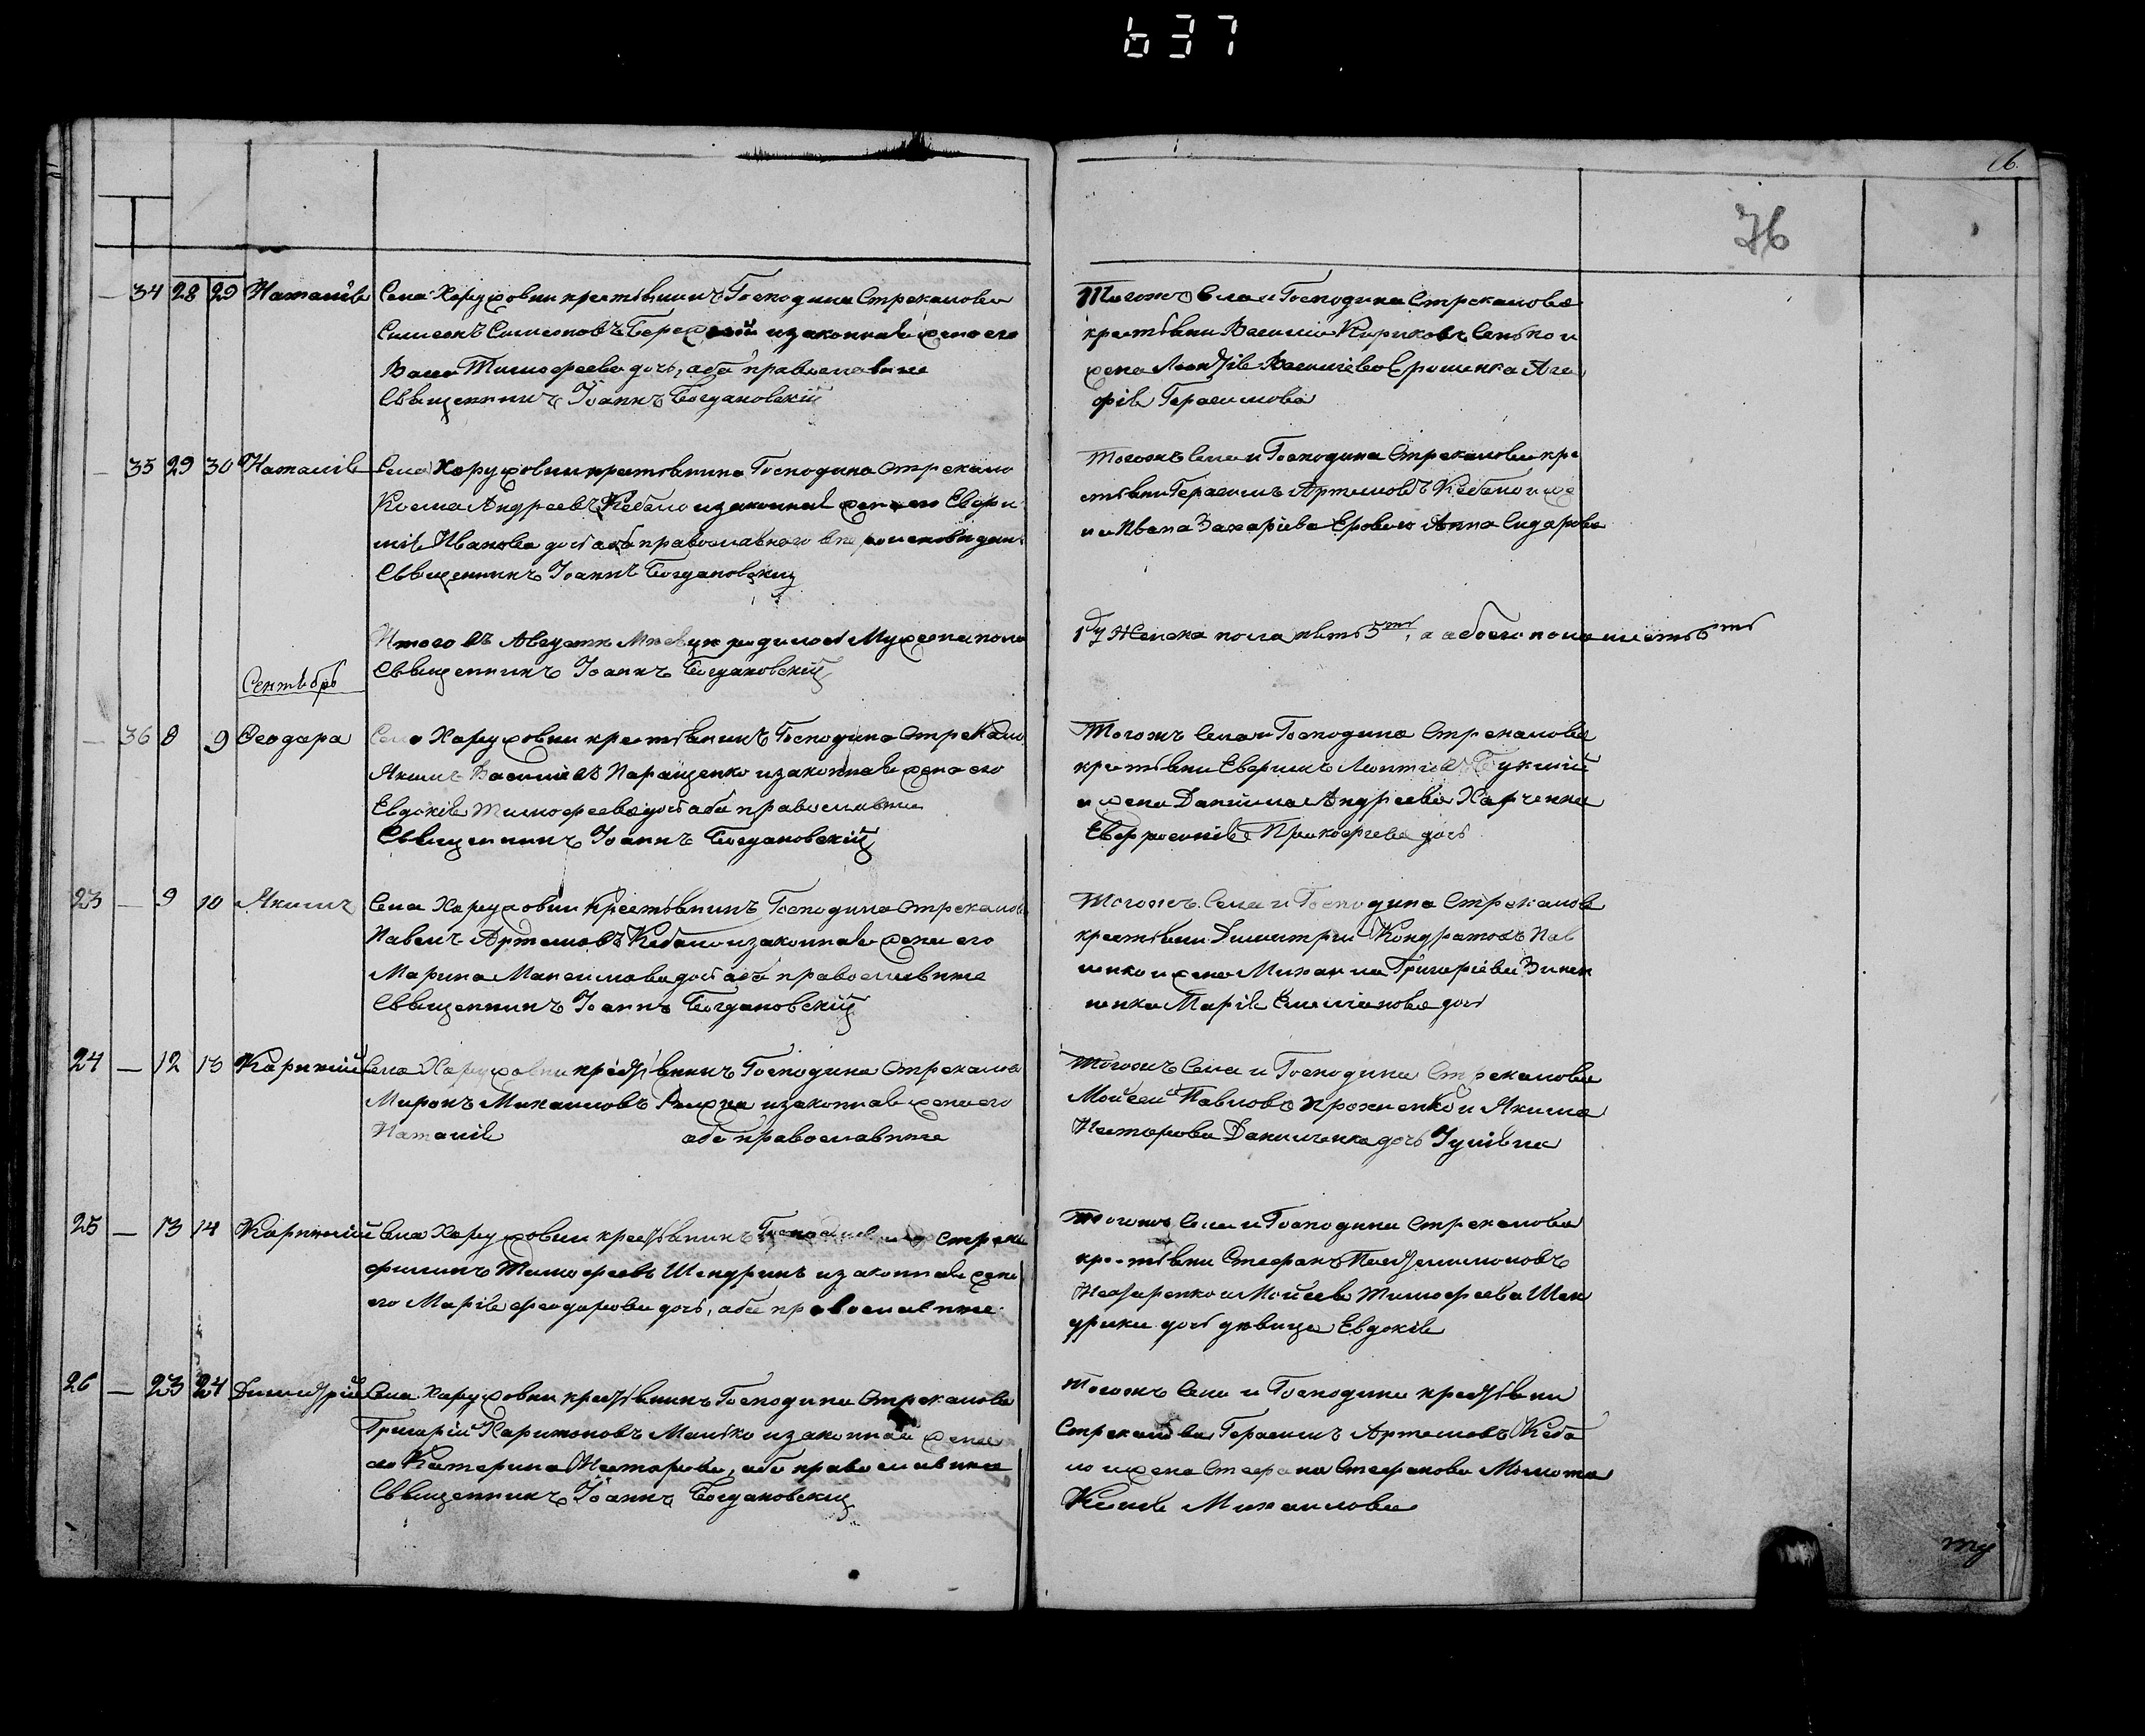 637
76
34 28 29 Наталія Села Харуховки крестьянинъ Господина Стрекалова
Симеонъ Симеоновъ и законная жена его
Васса Тимофеева дочь, оба православные
Священникъ Іоаннъ Богдановскій
Тогожъ села и Господина Стрекалова
крестьяни Василій Кириковъ Сенько и
жена Василіева Ерошенка Ага
фія Герасимова
35 29 30 Наталія Села Харуховки крестьянинъ Господина Стрекало
Косма Андреевъ Кебало и законная жена его Евфи
мія Иванова дочь оба православнаго вероисповедан
Священникъ Іоаннъ Богдановскій
Тогожъ села и Господина Стрекалова кре
стьяни Герасимъ Артемовъ Кебало и же
на Ивана Захаріева Анна Сидорова
Итого въ Августе месяце родилось Мужеска пола
Священникъ Іоаннъ Богдановскій
Женска пола пять 5ть, а обоего пола шесть 6ть
Сентябрь
36 8 9 Феодора Села Харуховки крестьянинъ Господина Стрекало
Якимъ Василіевъ Паращенко и законная жена его
Евдокія Тимофеева дочь оба православные
Священникъ Іоаннъ Богдановскій
Тогожъ села и Господина Стрекалова
крестьяни Леонтіевъ
и жена Даніила Андреева Харченка
Евфросинія Прокофіева дочь
23 — 9 10 Якимъ Села Харуховки крестьянинъ Господина Стрекалова
Павелъ Артемовъ Кебало и законная жена его
Марина Максимова дочь оба православные
Священникъ Іоаннъ Богдановскій
Тогожъ села и Господина Стрекалова
крестьяни Димитрій Кондратовъ Пав
ленко и жена Михаила Григоріева Зинен
ченка Марія Емеліанова дочь
24 — 12 13 Корнилій Села Харуховки крестьянинъ Господина Стрекалова
Миронъ Михаиловъ и законная жена его
Наталія оба православные
Тогожъ села и Господина Стрекалова
Мойсей Павловъ и Якима
Несторова Данильченка дочь
25 — 13 14 Корнилій Села Харуховки крестьянинъ Господина Стрека
Филипъ Тимофеевъ Шендрикъ и законная жена
его Марія Феодорова дочь, оба православные
Тогожъ села и Господина Стрекалова
крестьяни Стефанъ Пантелимоновъ
Назаренко и Мойсея Тимофеева Шен
дрика дочь девица Евдокія
26 — 23 24 Димитрій Села Харуховки крестьянинъ Господина Стрекалова
Григорій Харитоновъ Манько и законная жена
его Катерина Несторова, оба православные
Священникъ Іоаннъ Богдановскій
Тогожъ села и Господина крестьяни
Стрекалова Герасимъ Артемовъ Кеба
ло и жена Стефана Стефанова Момота
Михаилова